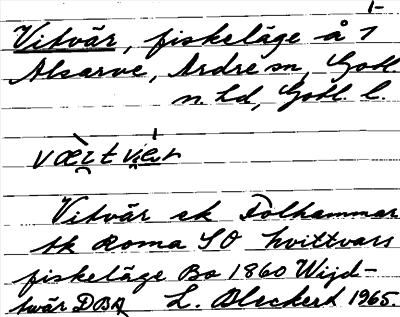 Vitvär, fiskeläge å 1
Alsarve, Ardre sn, Gotl.
n. hd, Gotl. l.
Vitvär ek Folhammar
tk Roma SO hvittvars
fiskeläge Bo 1860 Wijd-
twär DBA L. Bleckert 1965.